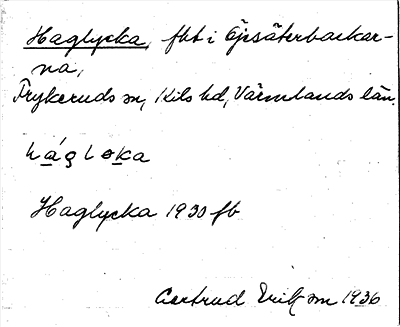 Haglycka, fbt i Öjesäterbackar-
na,
Frykeruds sn, Kils hd, Värmlands län.
hágloka
Haglycka 1930 fb
Gertrud Eriksson 1936